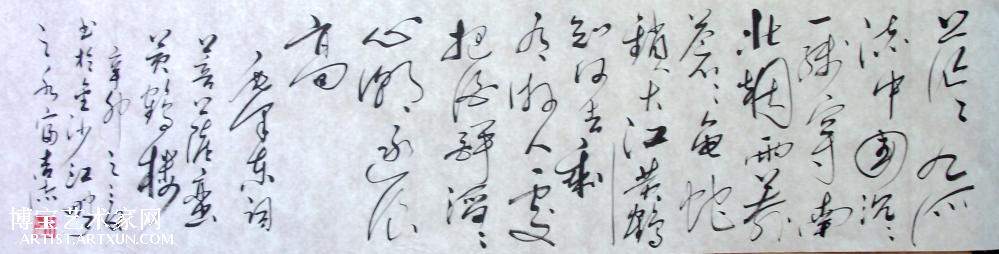 茫々九派
流中國沉々
一线穿南
北烟雨莽
苍々龟蛇
锁大江黄鶴
知何去剩
有游人处
把酒酹滔々
心潮逐浪
高
毛泽东词
菩萨蛮
黄鶴楼
辛卯之
书於金沙江畔
之水富
博宝艺术家网
ARTIST.ARTXUN.COM